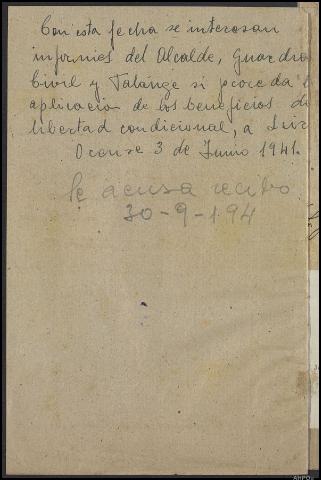 Con esta fecha se interesan
informes del Alcalde, Guardia
Civil y Falange si procede la
aplicación de los beneficios de
libertad condicional, a Luis
3 de Junio 1941.
Se acusa recibo
30-9-194